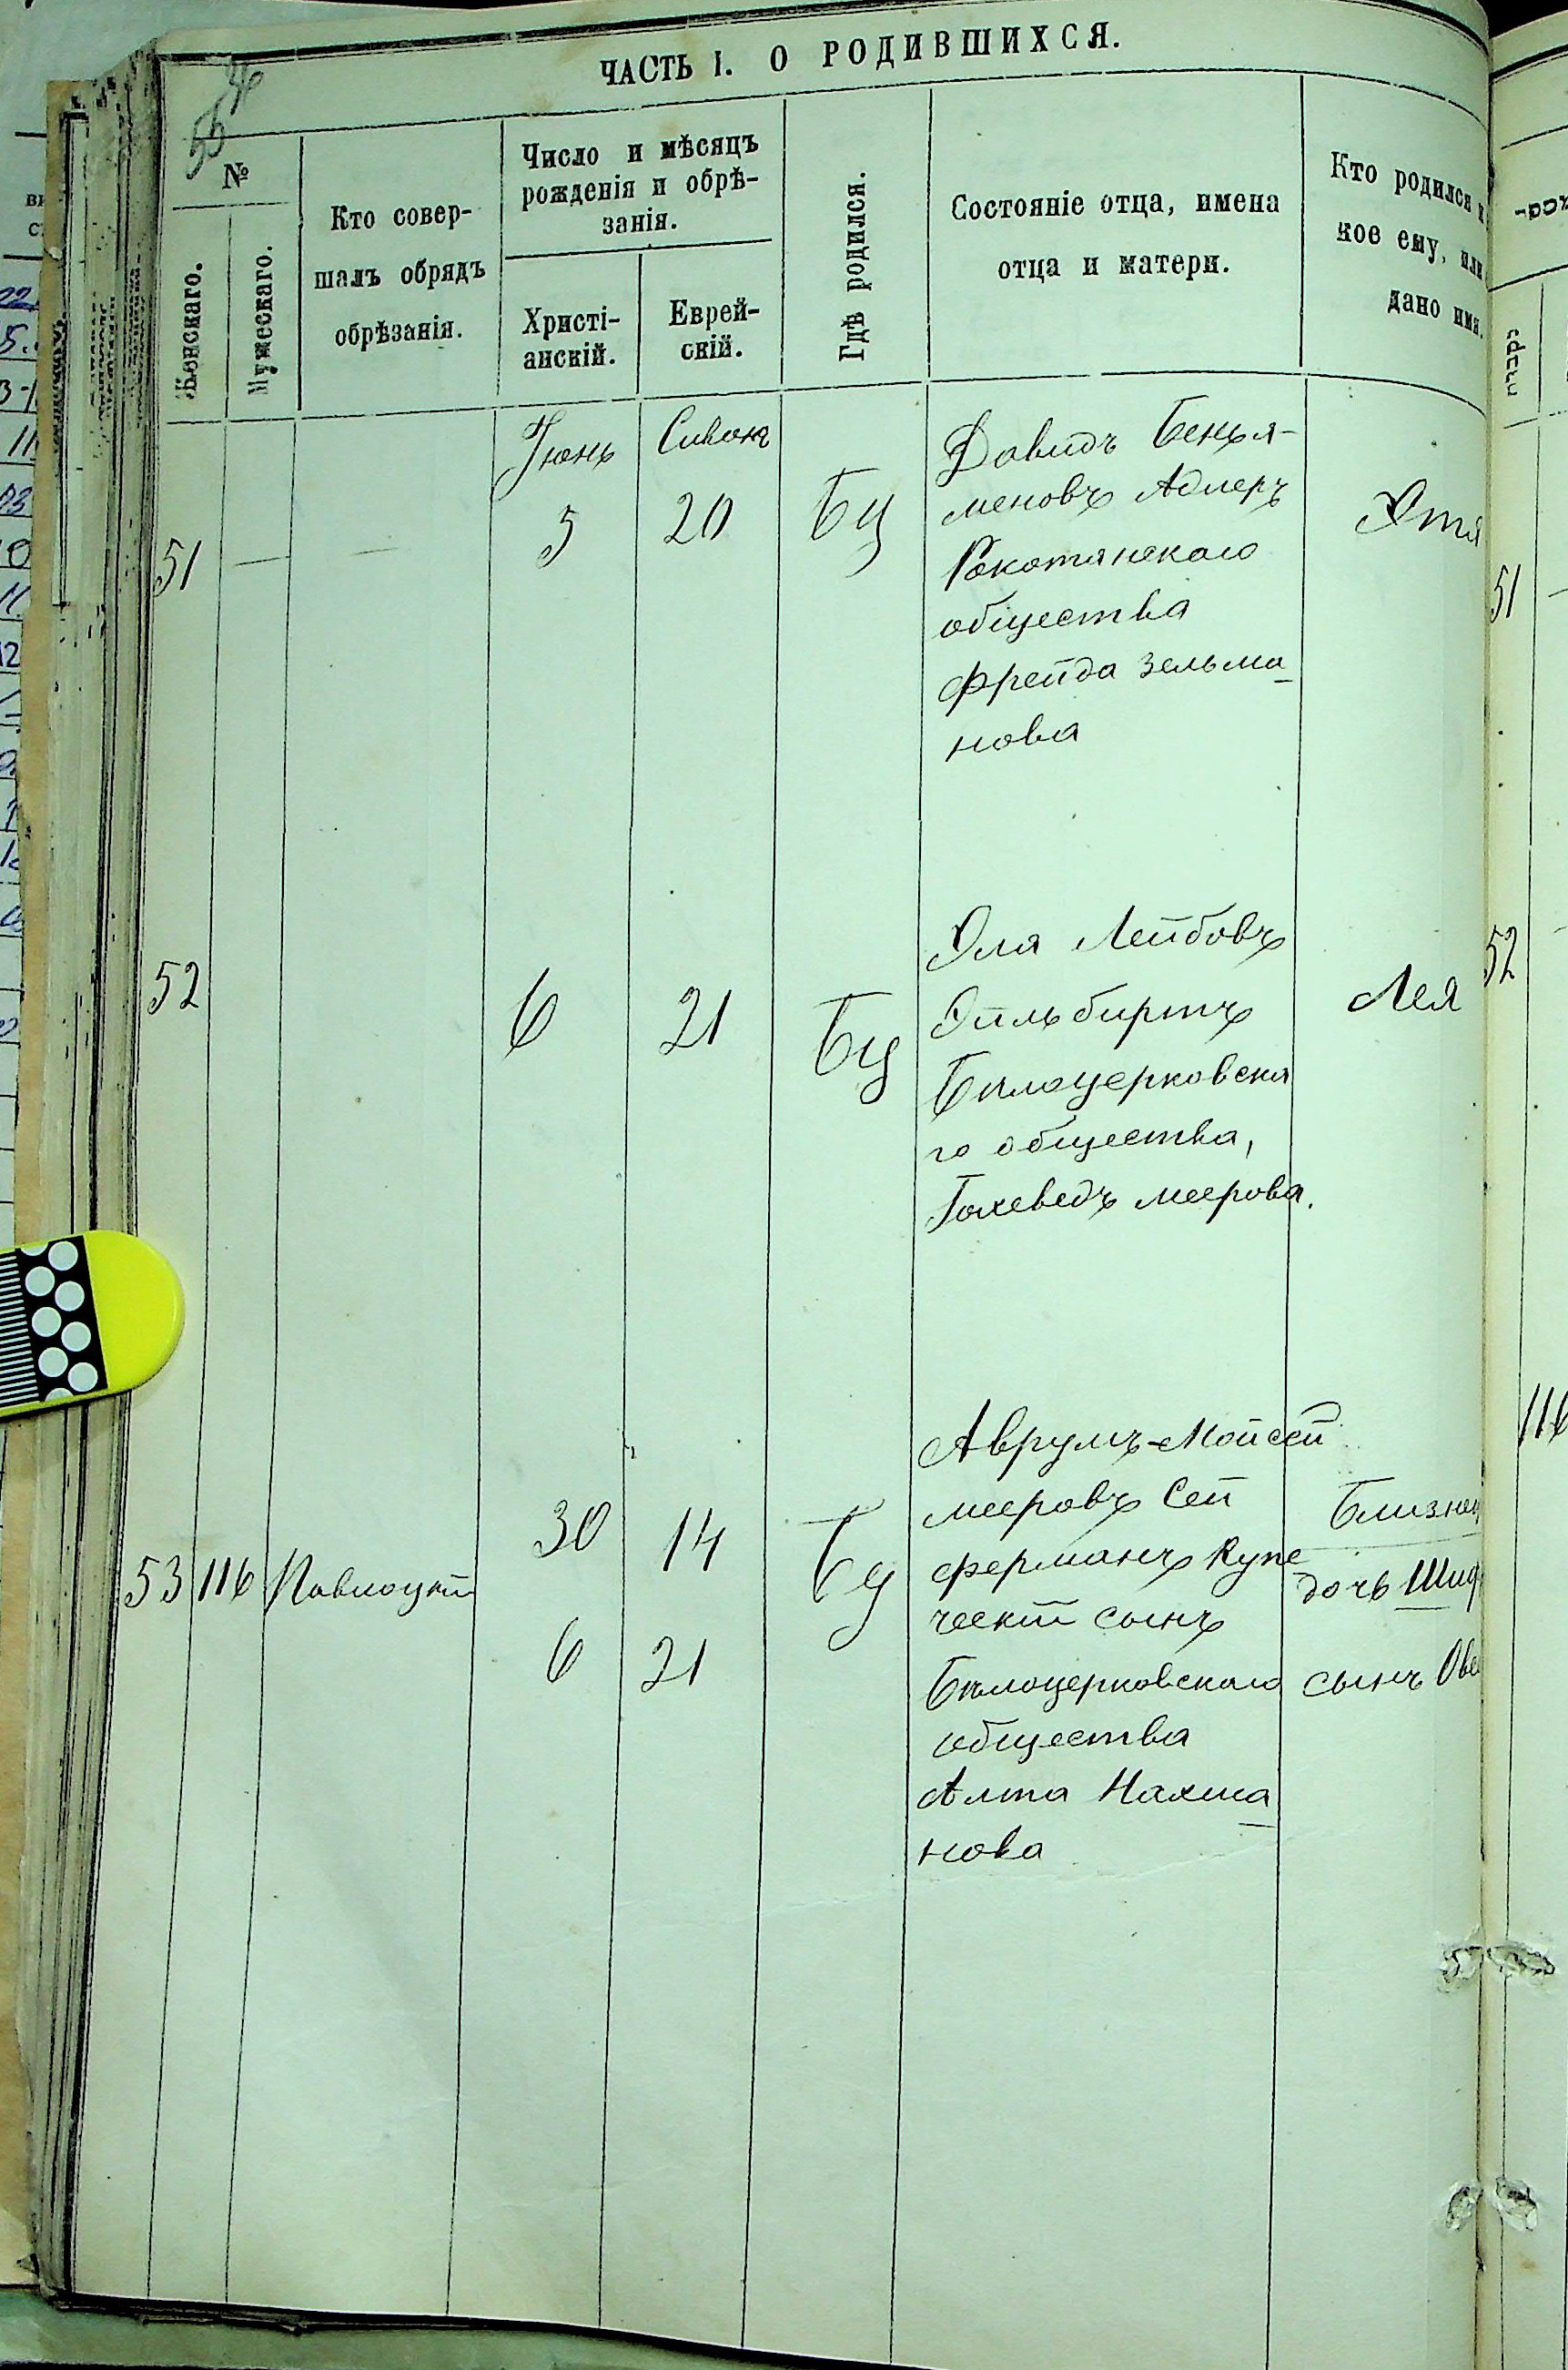 ЧАСТЬ I. О РОДИВШИХСЯ.
№
Женскаго.
Мужескаго.
Кто совер-
шалъ обрядъ
обрѣзанія.
Число и мѣсяцъ
рожденія и обрѣ-
занія.
Христі-
анскій.
Еврей-
скій.
Гдѣ родился.
Состояніе отца, имена
отца и матери.
Кто родился и
кое ему, или
дано имя.
Іюнь Сивонъ
51 — — 5 20 БЦ
Довидъ Бенья-
меновъ Адлеръ
Рокотянскаго
общества
Фрейда Зельма
нова
Этя
52 6 21 БЦ
Эля Лейбовъ
Эпльбиртъ
Бѣлоцерковска
го общества,
Іохеведъ Меерова.
Лея
53 116 Павлоцкій
30 14 БЦ
6 21
Аврумъ-Мойсей
Мееровъ Сей
ферманъ Купе
ческій сынъ
Бѣлоцерковскаго
общества
Алта Нахма
нова
Близнец
дочь Шиф
сынъ Ове
51
52
116